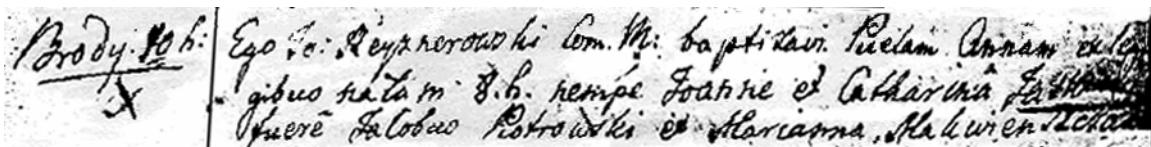 Brody. 10 h: Ego Jo: Reyznerowski Com. M: baptizavi Puelam Annam ex le
gibus natam 8. h. nempè Joanne et Catharinâ
fuerē Jacobus Piotrowski et Marianna